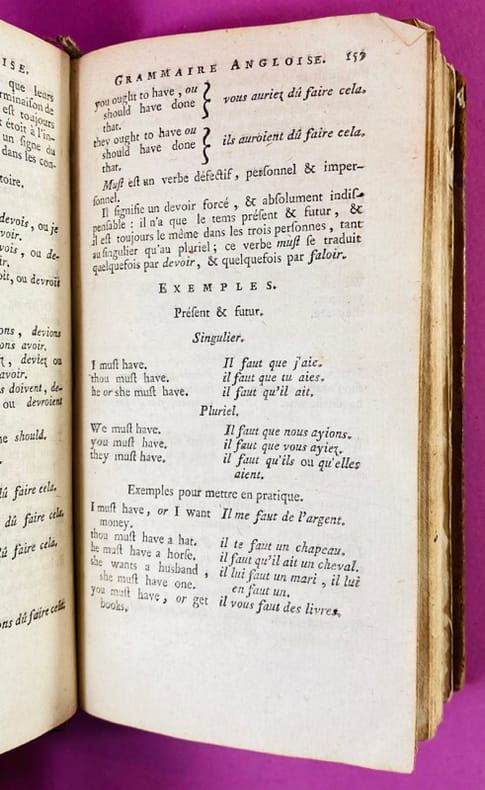 ISE.
que leurs
rminaiſon de
eſt toujours
étoit à l'in-
un ſigne du
dans les con-
toire.
devois, ou je
voir.
vois, ou de-
ir.
oit, ou devroit
ons, devions
ons avoir.
ou
avoir.
s doivent, de-
ou devroient
he should.
dû faire cela.
dû faire cela.
dû faire cela.
ons dû faire cela.
GRAMMAIRE ANGLOISE. 159
you ought to have, ou
ſhould have done } vous auriez dû faire cela.
that.
they ought to have ou
ſhould have done } ils auroient dû faire cela.
that.
Muſt eſt un verbe défectif, perſonnel & imper-
ſonnel.
Il ſignifie un devoir forcé, & abſolument indiſ-
penſable : il n'a que le tems préſent & futur, &
il eſt toujours le même dans les trois perſonnes, tant
au ſingulier qu'au pluriel ; ce verbe muſt ſe traduit
quelquefois par devoir, & quelquefois par faloir.
EXEMPLES.
Préſent & futur.
Singulier.
I muſt have. Il faut que j'aie.
thou muſt have. il faut que tu aies.
he or she muſt have. il faut qu'il ait.
Pluriel.
We muſt have. Il faut que nous ayions.
you muſt have. il faut que vous ayiez.
they muſt have. il faut qu'ils ou qu'elles
aient.
Exemples pour mettre en pratique.
I muſt have, or I want Il me faut de l'argent.
money.
thou muſt have a hat. il te faut un chapeau.
he muſt have a horſe. il faut qu'il ait un cheval.
she wants a husband, il lui faut un mari, il lui
she muſt have one. en faut un.
you muſt have, or get il vous faut des livres.
books.